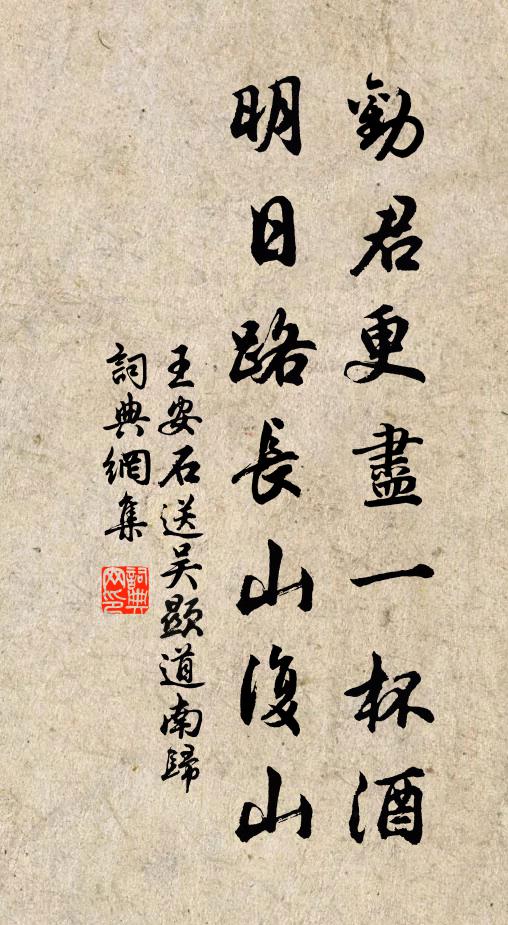 勸君更盡一杯酒
明日路長山復山
王安石送吴顯道南歸
詞典網集
詞典
网印